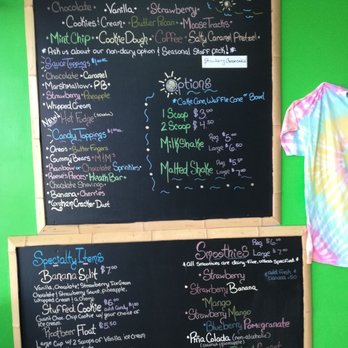 Chocolate • Vanilla • Strawberry
• Cookies & Cream • Butter Pecan • Moose Tracks •
• Mint Chip • Cookie Dough • Coffee • Salty Caramel Pretzel
*Ask us about our non-dairy option & Seasonal Staff pick!*
Strawberry Cheesecake
Sauce Toppings
• Chocolate • Caramel
• Marshmallow • PB
• Strawberry • Pineapple
• Whipped Cream
New Hot Fudge!
Candy Toppings
• Oreos • Butter Fingers
• Gummy Bears • M&M's
• Rainbow or Chocolate Sprinkles
• Reese's Pieces • Heath Bar
• Chocolate Shavings
• Banana • Cherries
• Graham Cracker Dust
Options
* Cake Cone, Waffle Cone * Bowl
1 Scoop $3
2 Scoop $4.50
Milkshake Reg $5
Large $6
Malted Shake Reg $5.50
Large $7.00
Specialty Items
Banana Split $7.00
Vanilla, Chocolate & Strawberry Ice Cream
Chocolate & Strawberry Sauce, pineapple,
Whipped Cream & a Cherry
Stuffed Cookie $6.00
Giant Choc. Chip Cookie w/ your choice of
ice cream
Root Beer Float $5.50
Large Cup w/ 2 Scoops of Vanilla ice cream
Smoothies Reg $6
Large $7
* All Smoothies are dairy-free, unless specified *
• Strawberry
• Strawberry Banana
• Mango
• Strawberry Mango
• Blueberry Pomegranate
• Piña Colada (non-alcoholic)
add fresh
Banana